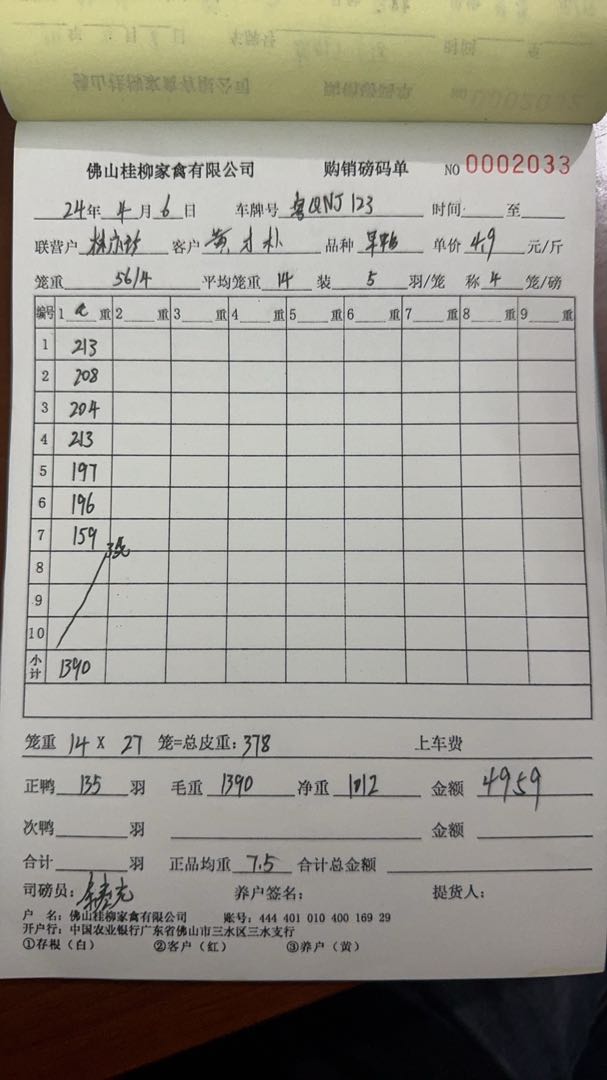 佛山桂柳家禽有限公司 购销磅码单 NO 0002033
24年 4月 6日 车牌号 粤QNJ123 时间 至
联营户 客户 黄才朴 品种 单价 4.9 元/斤
笼重 56/4 平均笼重 14 装 5 羽/笼 称 4 笼/磅
编号 1 重 2 重 3 重 4 重 5 重 6 重 7 重 8 重 9 重
1 213
2 208
3 204
4 213
5 197
6 196
7 159
3笼
8
9
10
小计 1390
笼重 14 X 27 笼=总皮重: 378 上车费
正鸭 135 羽 毛重 1390 净重 1012 金额 4959
次鸭 羽 金额
合计 羽 正品均重 7.5 合计总金额
司磅员: 养户签名: 提货人:
户 名: 佛山桂柳家禽有限公司 账号: 444 401 010 400 169 29
开户行: 中国农业银行广东省佛山市三水区三水支行
①存根(白) ②客户(红) ③养户(黄)